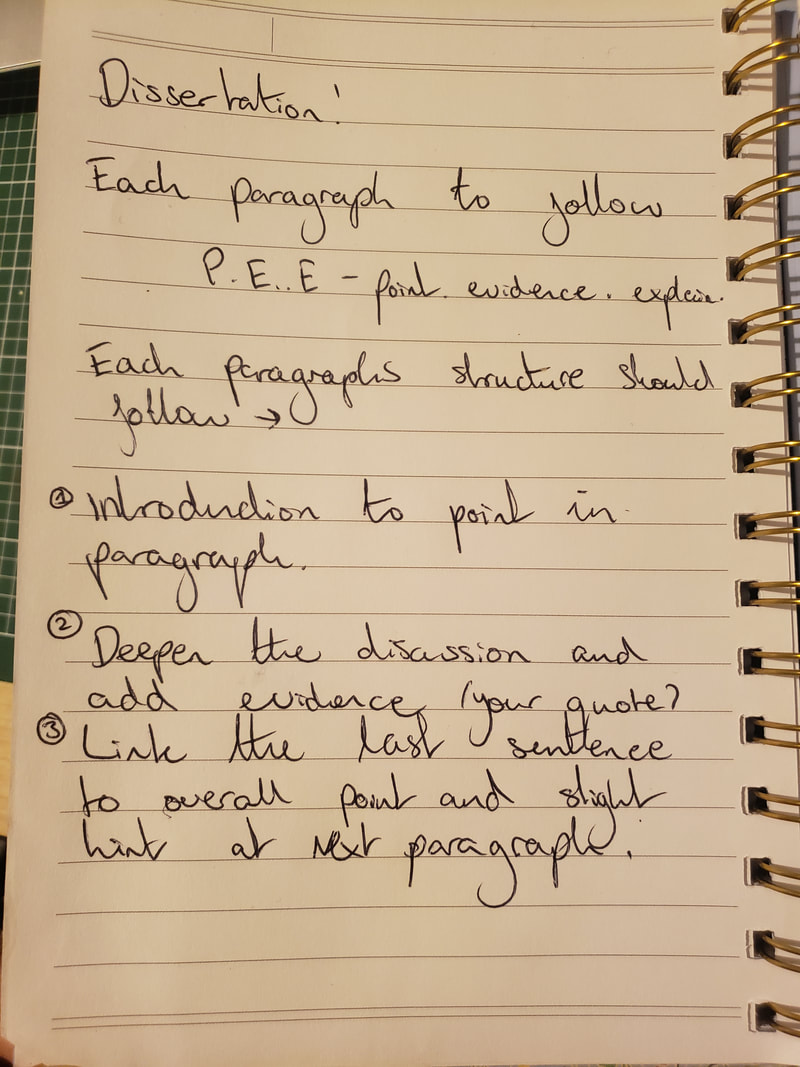 Dissertation!
Each paragraph to follow
P.E..E - point. evidence. explain.
Each paragraphs structure should
follow →
① Introduction to point in
paragraph.
② Deepen the discussion and
add evidence (your quote?
③ Link the last sentence
to overall point and slight
hint at next paragraph.